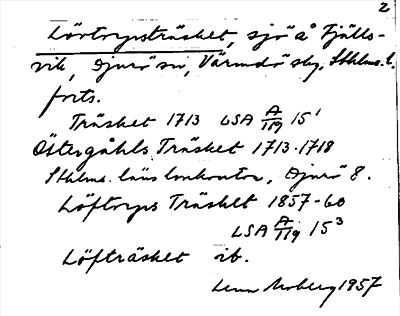 2
Lövtorpsträsket, sjö å Fjälls-
vik, Djurö sn, Värmdö skg, Sthlms. l.
forts.
Träsket 1713 LSA A/119 15¹
Östergåhls Träsket 1713-1718
Sthlms. läns lmkontor, Djurö 8.
Löftorps Träsket 1857-60
LSA A/119 15³
Löfträsket ib.
Lena Moberg 1957